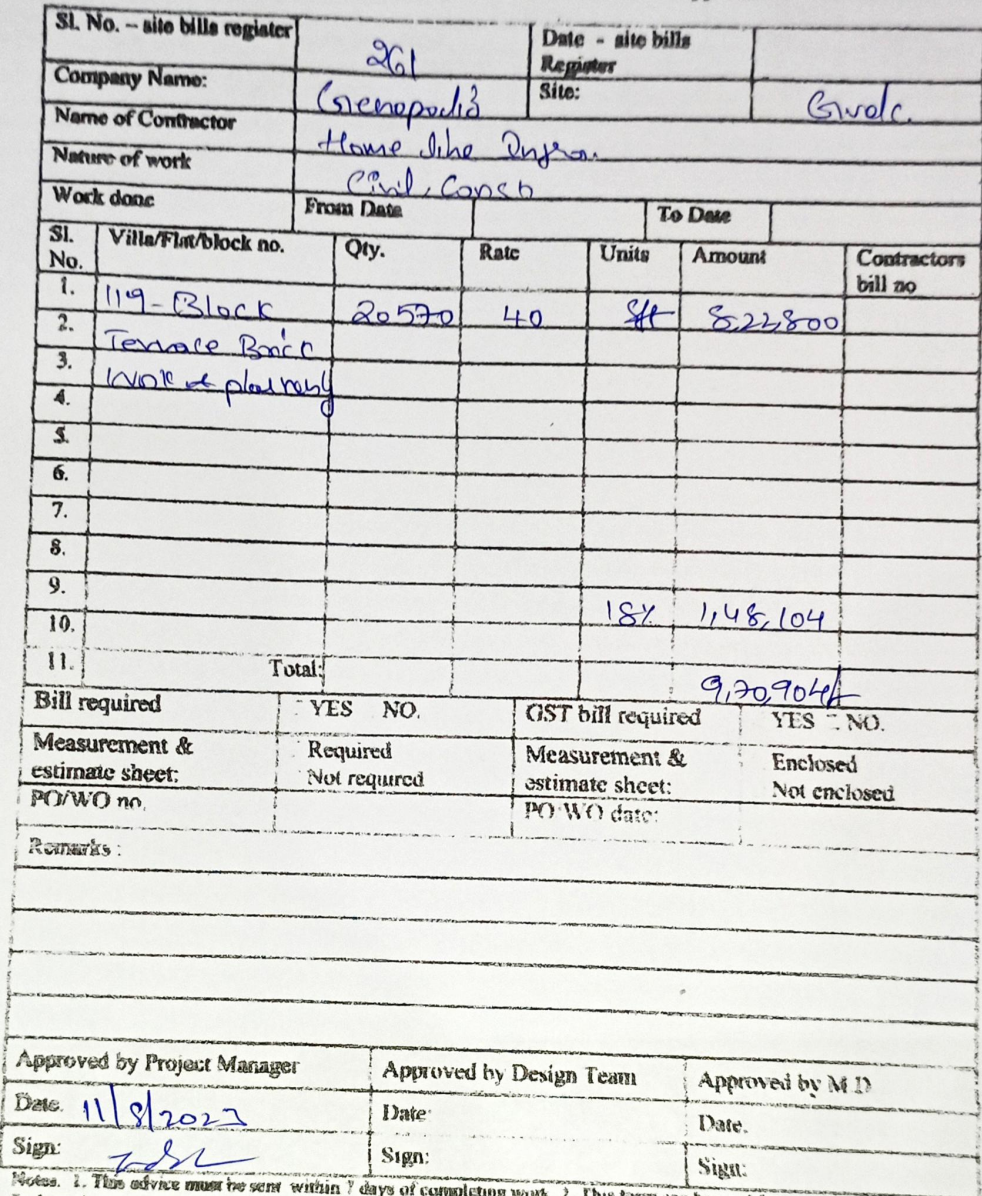 Sl. No. – site bills register 261 Date - site bills Register
Company Name: Genopolis Site: Gvdc.
Name of Contractor Home like Infra.
Nature of work Civil, Const
Work done From Date To Date
Sl. No. Villa/Flat/block no. Qty. Rate Units Amount Contractors bill no
1. 119-Block 20570 40 Sft 8,22,800
2. Terrace Brick
3. Work & plastering
4.
5.
6.
7.
8.
9. 18% 1,48,104
10.
11. Total: 9,70,904/-
Bill required YES NO. GST bill required YES NO.
Measurement & estimate sheet: Required Not required Measurement & estimate sheet: Enclosed Not enclosed
PO/WO no. PO/WO date:
Remarks :
Approved by Project Manager Approved by Design Team Approved by M D
Date. 11/8/2023 Date Date.
Sign: Sign: Sign:
Notes. 1. This advice must be sent within 7 days of completing work. 2. This form